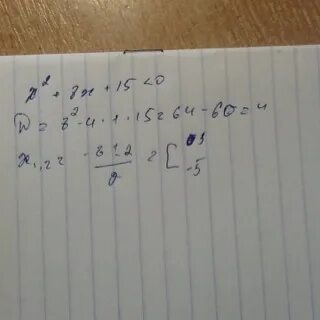 x² + 8x + 15 < 0
D = 8² - 4 · 1 · 15 = 64 - 60 = 4
x₁,₂ = (-8 ± 2)/2 = [ -3 -5